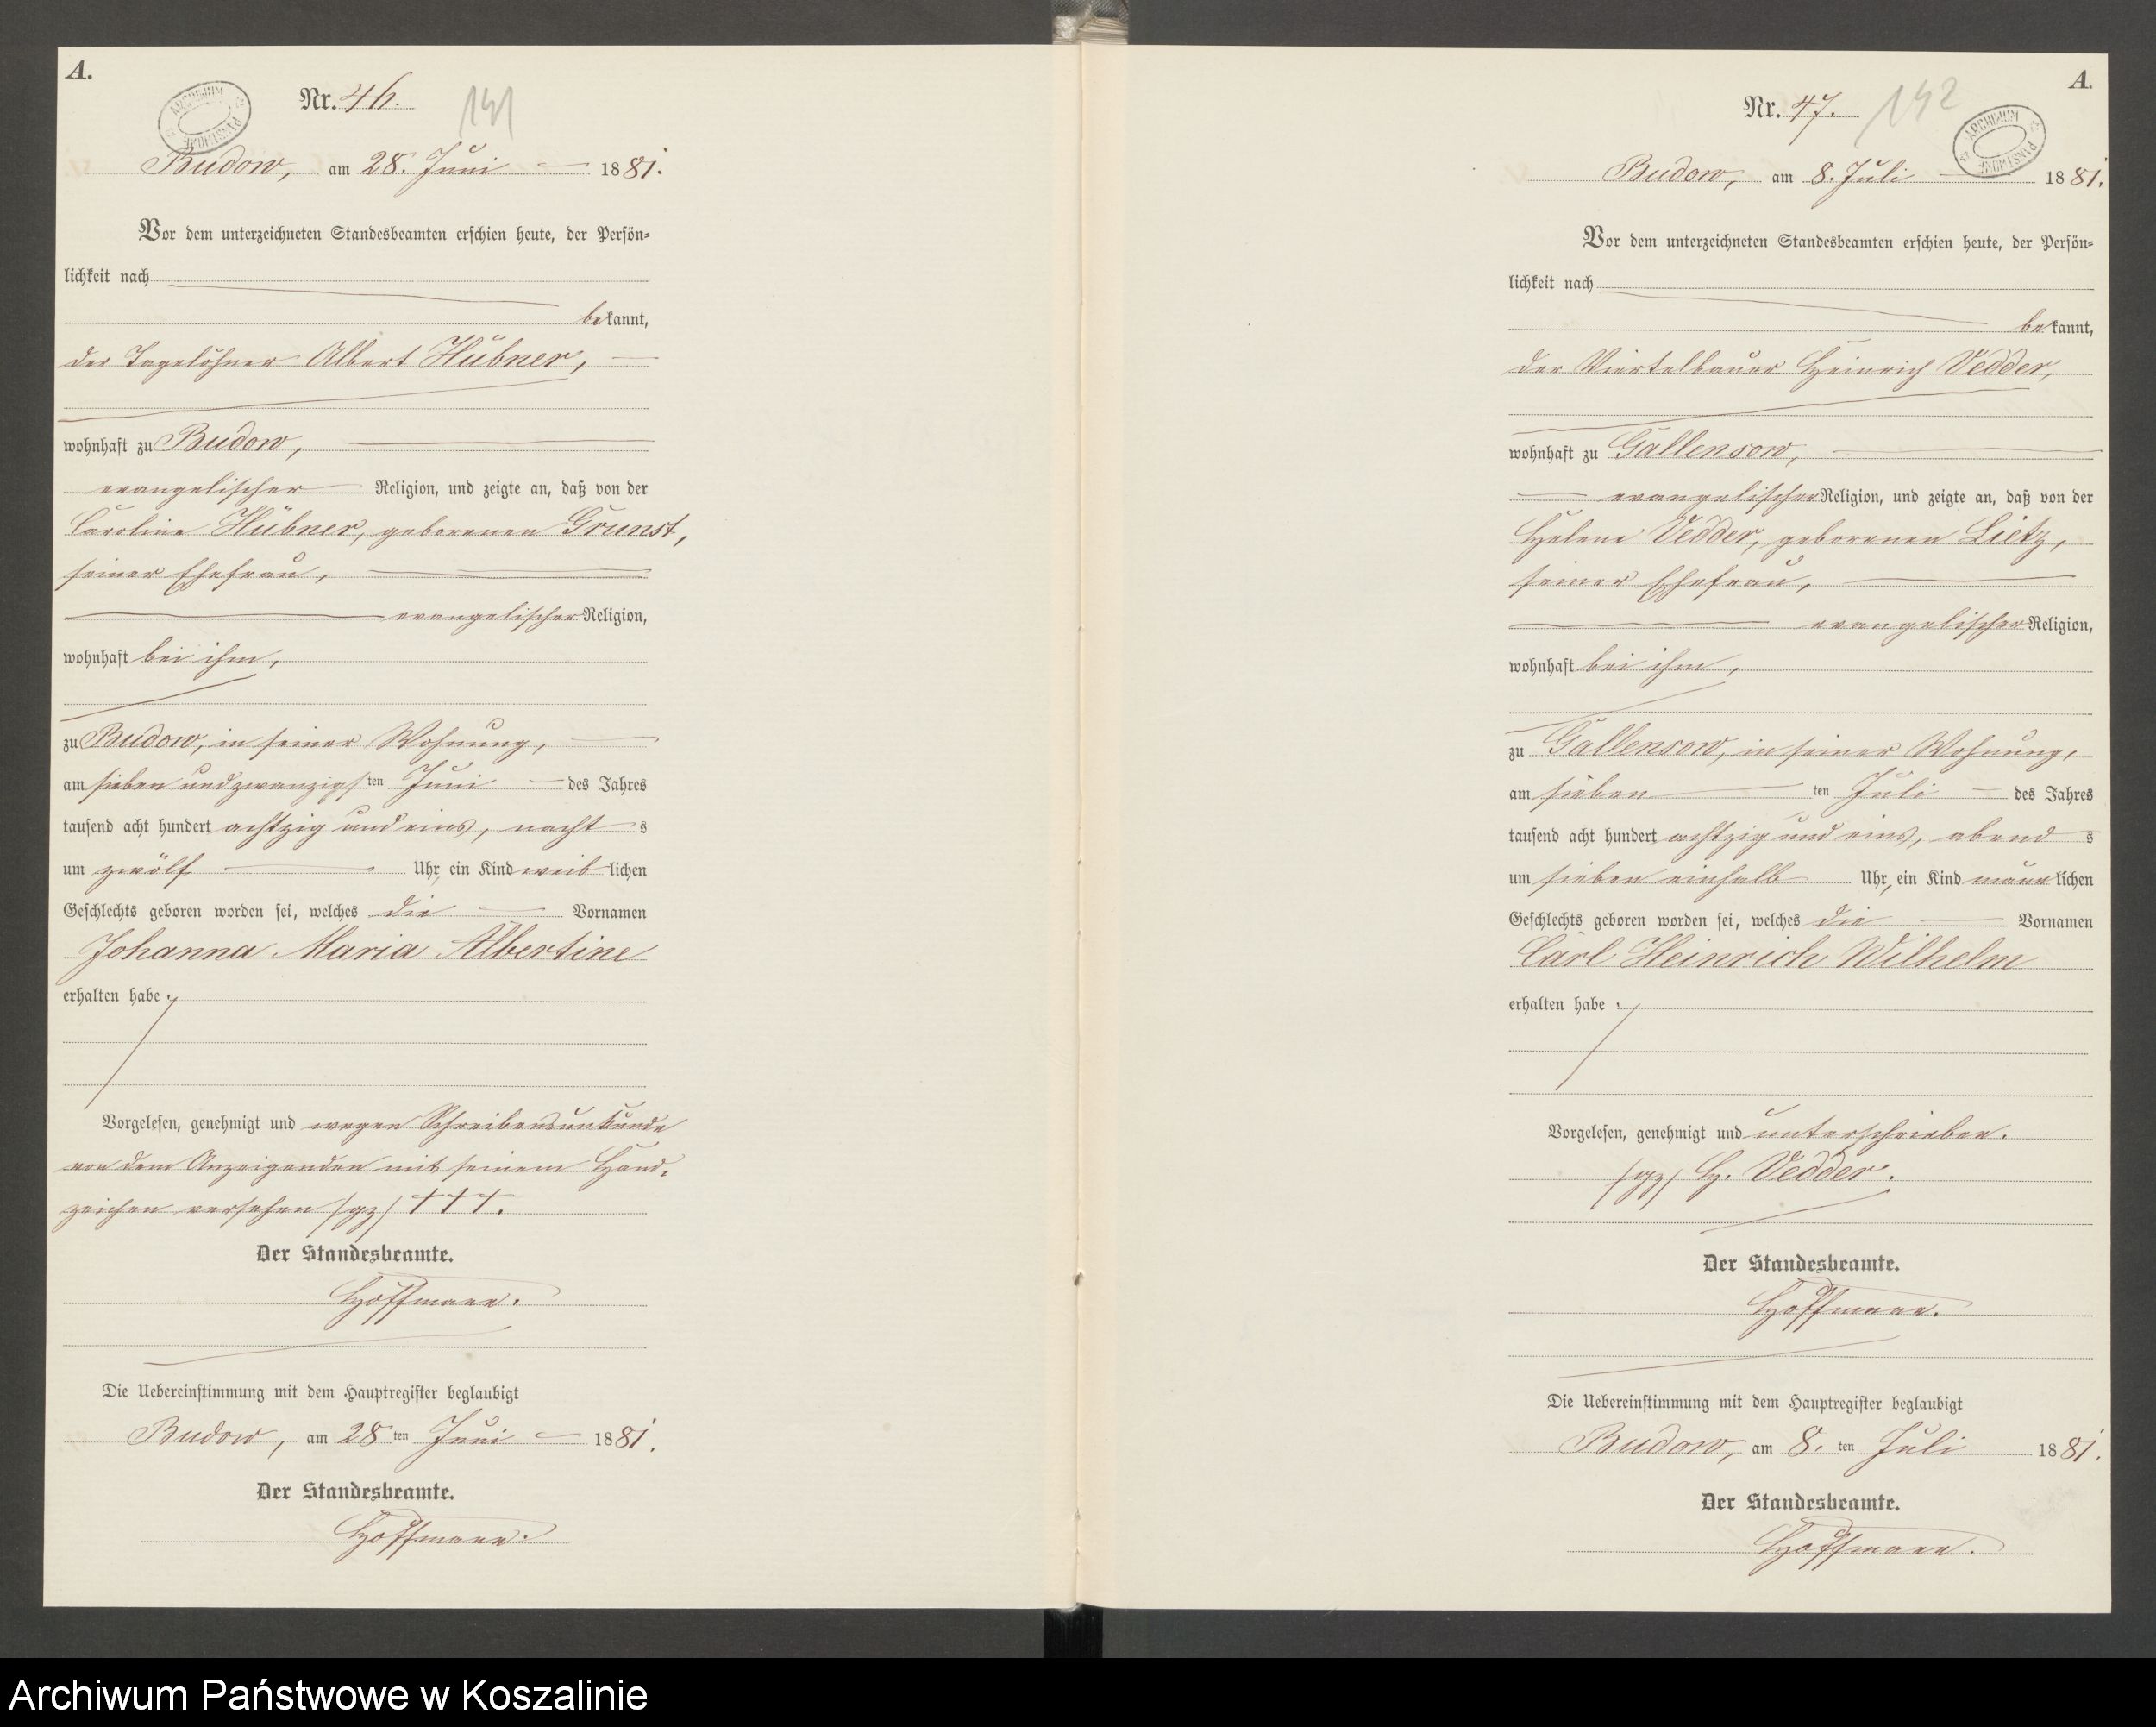 A.
Nr. 46.
141
ARCHIWUM PAŃSTWOWE
Budow, am 28. Juni 1881.
Vor dem unterzeichneten Standesbeamten erschien heute, der Persön=
lichkeit nach
bekannt,
der Tagelöhner Albert Hübner,
wohnhaft zu Budow,
evangelischer Religion, und zeigte an, daß von der
Caroline Hübner, geborenen Grunst,
seiner Ehefrau,
evangelischer Religion,
wohnhaft bei ihm,
zu Budow, in seiner Wohnung,
am sieben und zwanzigsten Juni des Jahres
tausend acht hundert achtzig und eins, nachts
um zwölf Uhr, ein Kind weiblichen
Geschlechts geboren worden sei, welches die Vornamen
Johanna Maria Albertine
erhalten habe.
Vorgelesen, genehmigt und wegen Schreibensunkunde
von dem Anzeigenden mit seinem Hand=
zeichen versehen /gz/ +++.
Der Standesbeamte.
Hoffmann.
Die Uebereinstimmung mit dem Hauptregister beglaubigt
Budow, am 28ten Juni 1881.
Der Standesbeamte.
Hoffmann.
A.
Nr. 47.
142
ARCHIWUM PAŃSTWOWE
Budow, am 8. Juli 1881.
Vor dem unterzeichneten Standesbeamten erschien heute, der Persön=
lichkeit nach
bekannt,
der Viertelbauer Heinrich Vedder,
wohnhaft zu Gallensow,
evangelischer Religion, und zeigte an, daß von der
Helene Vedder, geborenen Lietz,
seiner Ehefrau,
evangelischer Religion,
wohnhaft bei ihm,
zu Gallensow, in seiner Wohnung,
am siebenten Juli des Jahres
tausend acht hundert achtzig und eins, abends
um sieben einhalb Uhr, ein Kind männlichen
Geschlechts geboren worden sei, welches die Vornamen
Carl Heinrich Wilhelm
erhalten habe.
Vorgelesen, genehmigt und unterschrieben.
/gz/ H. Vedder.
Der Standesbeamte.
Hoffmann.
Die Uebereinstimmung mit dem Hauptregister beglaubigt
Budow, am 8. ten Juli 1881.
Der Standesbeamte.
Hoffmann.
Archiwum Państwowe w Koszalinie